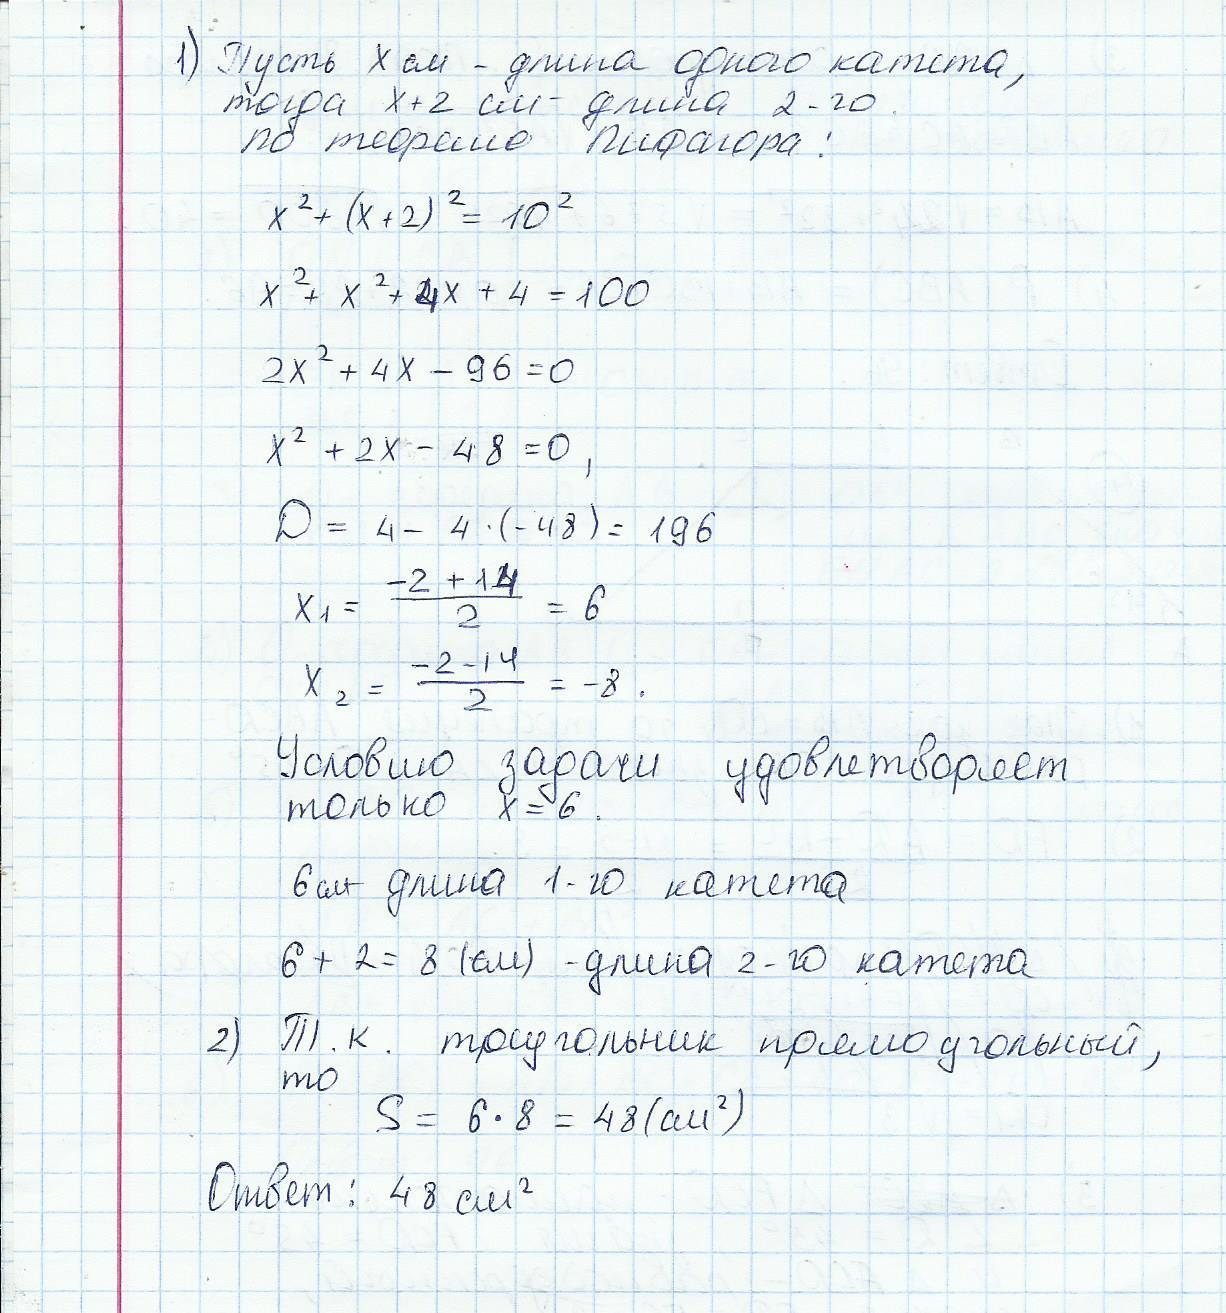 1) Пусть x см - длина одного катета,
тогда x+2 см - длина 2-го.
по теореме Пифагора:
x² + (x+2)² = 10²
x² + x² + 4x + 4 = 100
2x² + 4x - 96 = 0
x² + 2x - 48 = 0,
D = 4 - 4·(-48) = 196
x₁ = (-2 + 14)/2 = 6
x₂ = (-2 - 14)/2 = -8.
Условию задачи удовлетворяет
только x = 6.
6 см - длина 1-го катета
6 + 2 = 8 (см) - длина 2-го катета
2) Т.к. треугольник прямоугольный,
то
S = 6·8 = 48 (см²)
Ответ: 48 см²